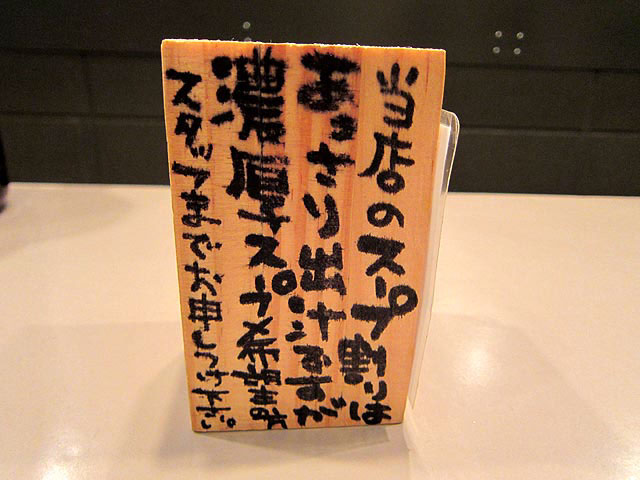 当店のスープ割りは
あっさり出汁ですが
濃厚スープ希望時
スタッフまでお申しつけ下さい。